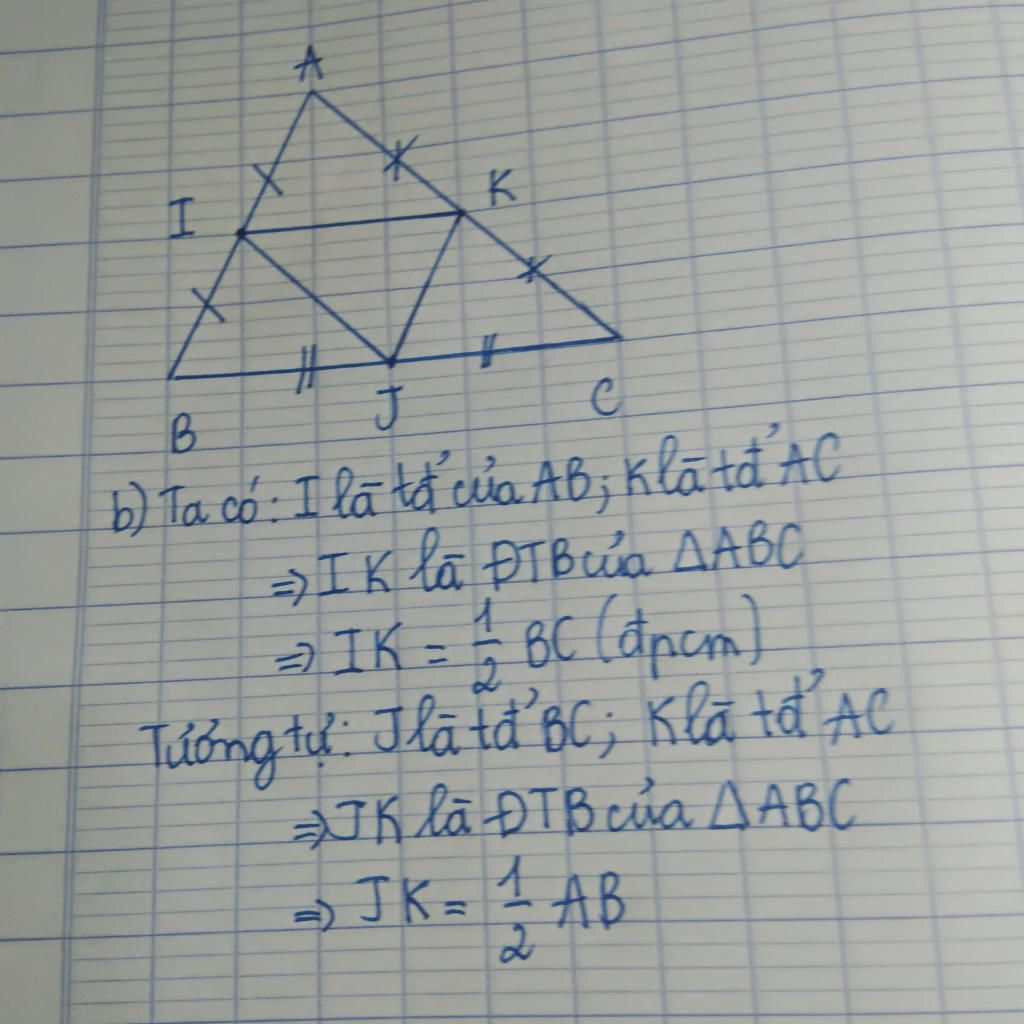 A
I
K
B
J
C
b) Ta có: I là tđ' của AB; K là tđ' AC
=> IK là ĐTB của ΔABC
=> IK = 1/2 BC (đpcm)
Tương tự: J là tđ' BC; K là tđ' AC
=> JK là ĐTB của ΔABC
=> JK = 1/2 AB